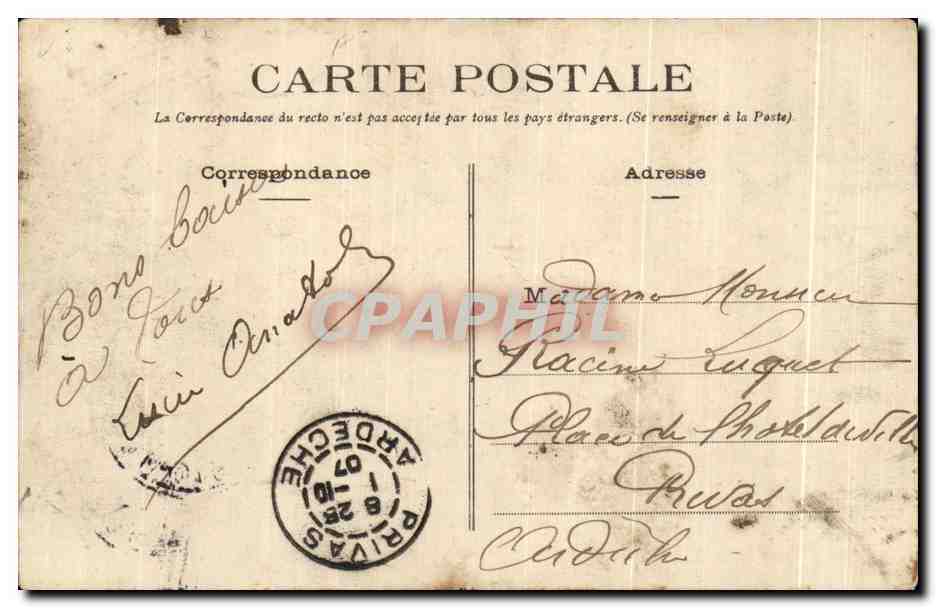 CARTE POSTALE
La Correspondance du recto n'est pas acceptée par tous les pays étrangers. (Se renseigner à la Poste).
Correspondance
Adresse
Bons baisers
à Tous
Lucie Anatole
CPAPHIL
Madame Monsieur
Racine Luquet
Place de l'hotel de Ville
Privas
Ardèche
PRIVAS
8 25
1 -10
07
ARDECHE